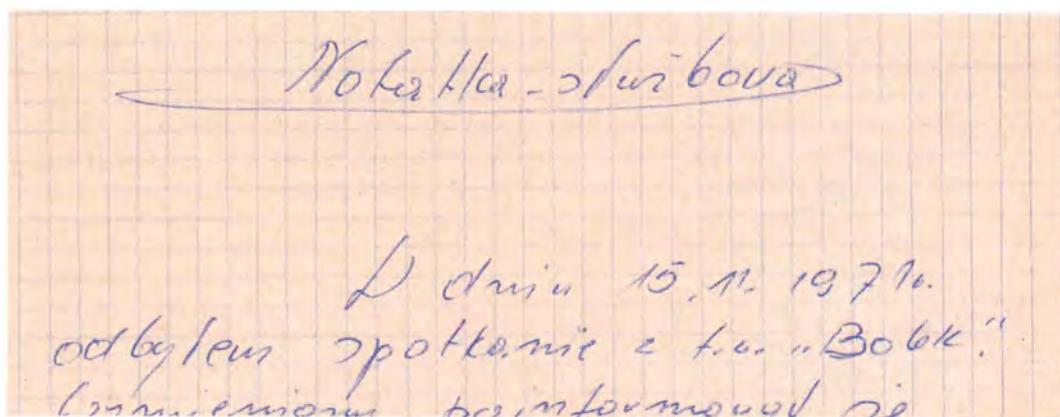 Notatka-służbowa
W dniu 15.11.1971r.
odbyłem spotkanie z t.w. "Bolek".
poinformował że